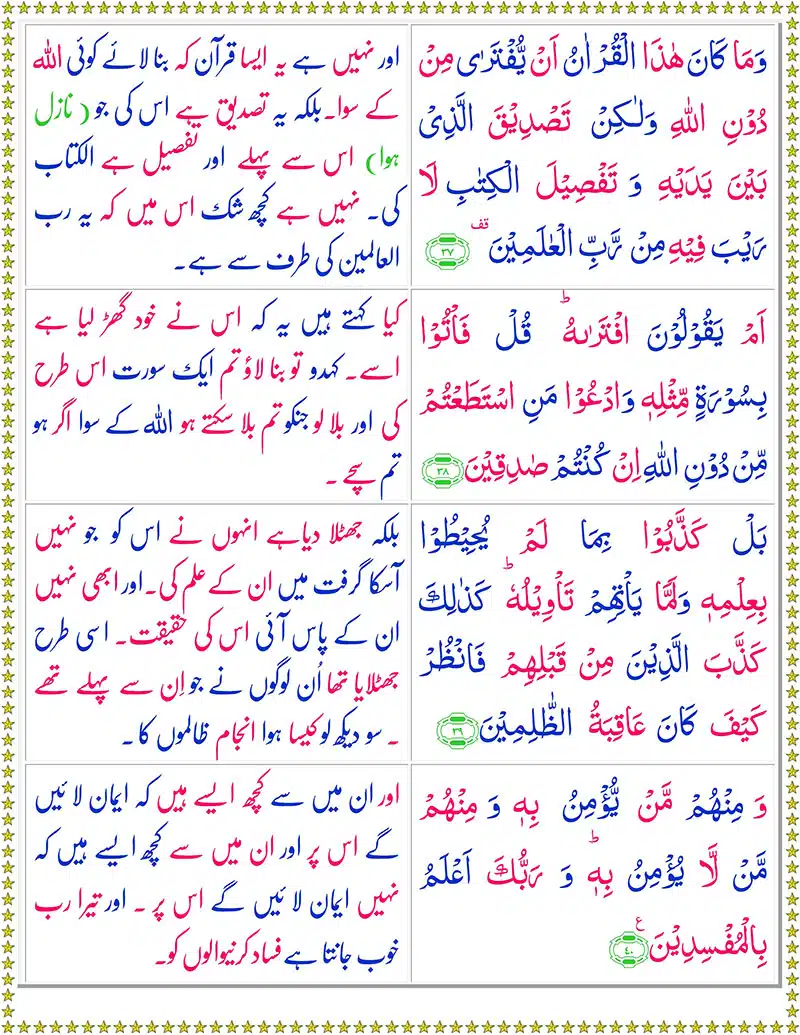 وَمَا كَانَ هٰذَا الْقُرْاٰنُ اَنْ يُّفْتَرٰى مِنْ
دُوْنِ اللّٰهِ وَلٰكِنْ تَصْدِيْقَ الَّذِىْ
بَيْنَ يَدَيْهِ وَ تَفْصِيْلَ الْكِتٰبِ لَا
رَيْبَ فِيْهِ مِنْ رَّبِّ الْعٰلَمِيْنَ قف ٣٧
اور نہیں ہے یہ ایسا قرآن کہ بنا لائے کوئی اللہ
کے سوا۔ بلکہ یہ تصدیق ہے اس کی جو (نازل
ہوا) اس سے پہلے اور تفصیل ہے الکتاب
کی۔ نہیں ہے کچھ شک اس میں کہ یہ رب
العالمین کی طرف سے ہے۔
اَمْ يَقُوْلُوْنَ افْتَرٰٮهُ ؕ قُلْ فَاْتُوْا
بِسُوْرَةٍ مِّثْلِهٖ وَادْعُوْا مَنِ اسْتَطَعْتُمْ
مِّنْ دُوْنِ اللّٰهِ اِنْ كُنْتُمْ صٰدِقِيْنَ ٣٨
کیا کہتے ہیں یہ کہ اس نے خود گھڑ لیا ہے
اسے۔ کہدو تو بنا لاؤ تم ایک سورت اس طرح
کی اور بلا لو جنکو تم بلا سکتے ہو اللہ کے سوا اگر ہو
تم سچے ۔
بَلْ كَذَّبُوْا بِمَا لَمْ يُحِيْطُوْا
بِعِلْمِهٖ وَلَمَّا يَاْتِهِمْ تَاْوِيْلُهٗ ؕ كَذٰلِكَ
كَذَّبَ الَّذِيْنَ مِنْ قَبْلِهِمْ فَانْظُرْ
كَيْفَ كَانَ عَاقِبَةُ الظّٰلِمِيْنَ ٣٩
بلکہ جھٹلا دیاہے انہوں نے اس کو جو نہیں
آسکا گرفت میں ان کے علم کی۔ اور ابھی نہیں
ان کے پاس آئی اس کی حقیقت۔ اسی طرح
جھٹلایا تھا اُن لوگوں نے جو اِن سے پہلے تھے
۔ سو دیکھ لو کیسا ہوا انجام ظالموں کا ۔
وَ مِنْهُمْ مَّنْ يُّؤْمِنُ بِهٖ وَ مِنْهُمْ
مَّنْ لَّا يُؤْمِنُ بِهٖ ؕ وَ رَبُّكَ اَعْلَمُ
بِالْمُفْسِدِيْنَ ع ٤٠
اور ان میں سے کچھ ایسے ہیں کہ ایمان لائیں
گے اس پر اور ان میں سے کچھ ایسے ہیں کہ
نہیں ایمان لائیں گے اس پر ۔ اور تیرا رب
خوب جانتا ہے فساد کرنیوالوں کو۔